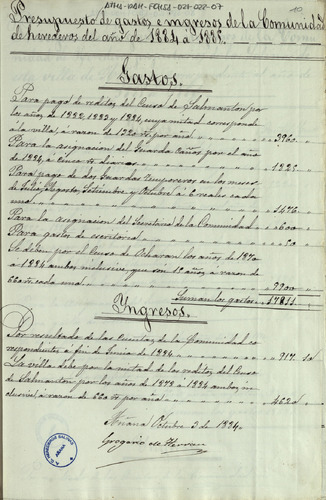 ATHA-DAH-FCMSA-021-022-07
Presupuesto de gastos e ingresos de la Comunidad
de herederos del año de 1884 a 1885.
Gastos.
Para pago de reditos del Censo de Salmanton por
los años de 1882, 1883 y 1884, cuya mitad corresponde
a la villa, a razon de 1320 rs por año 3960
Para la asignacion del Guarda Eañas por el año
de 1884, a Cinco rs diarios 1825
Para pago de dos Guardas Temporeros en los meses
de Julio, Agosto, Setiembre y Octubre a 6 reales cada
uno 1476
Para la asignacion del Secretario de la Comunidad 600
Para gastos de escritorio
Se deben por el Censo de Acharan los años de 1870
a 1884 ambos inclusive, que son 15 años a razon de
660 rs cada uno 9900
Suman los gastos 17811
Ingresos.
Por resultado de las Cuentas de la Comunidad co
rrespondientes a fin de Junio de 1884 917
La villa debe por la mitad de los reditos del Censo
de Salmanton por los años de 1878 a 1884 ambos in
clusive, a razon de 660 rs por año 4620
Añana Octubre 3 de 1884
Gregorio de Herran